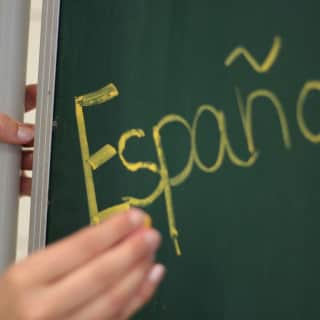 Españo